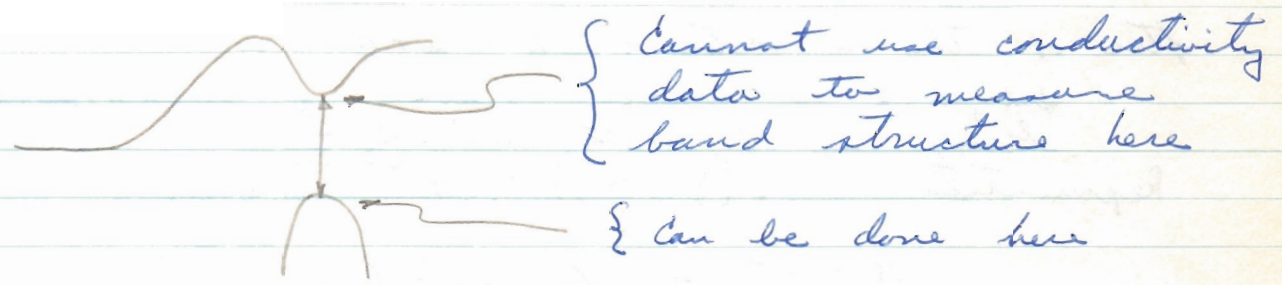 Cannot use conductivity
data to measure
band structure here
Can be done here